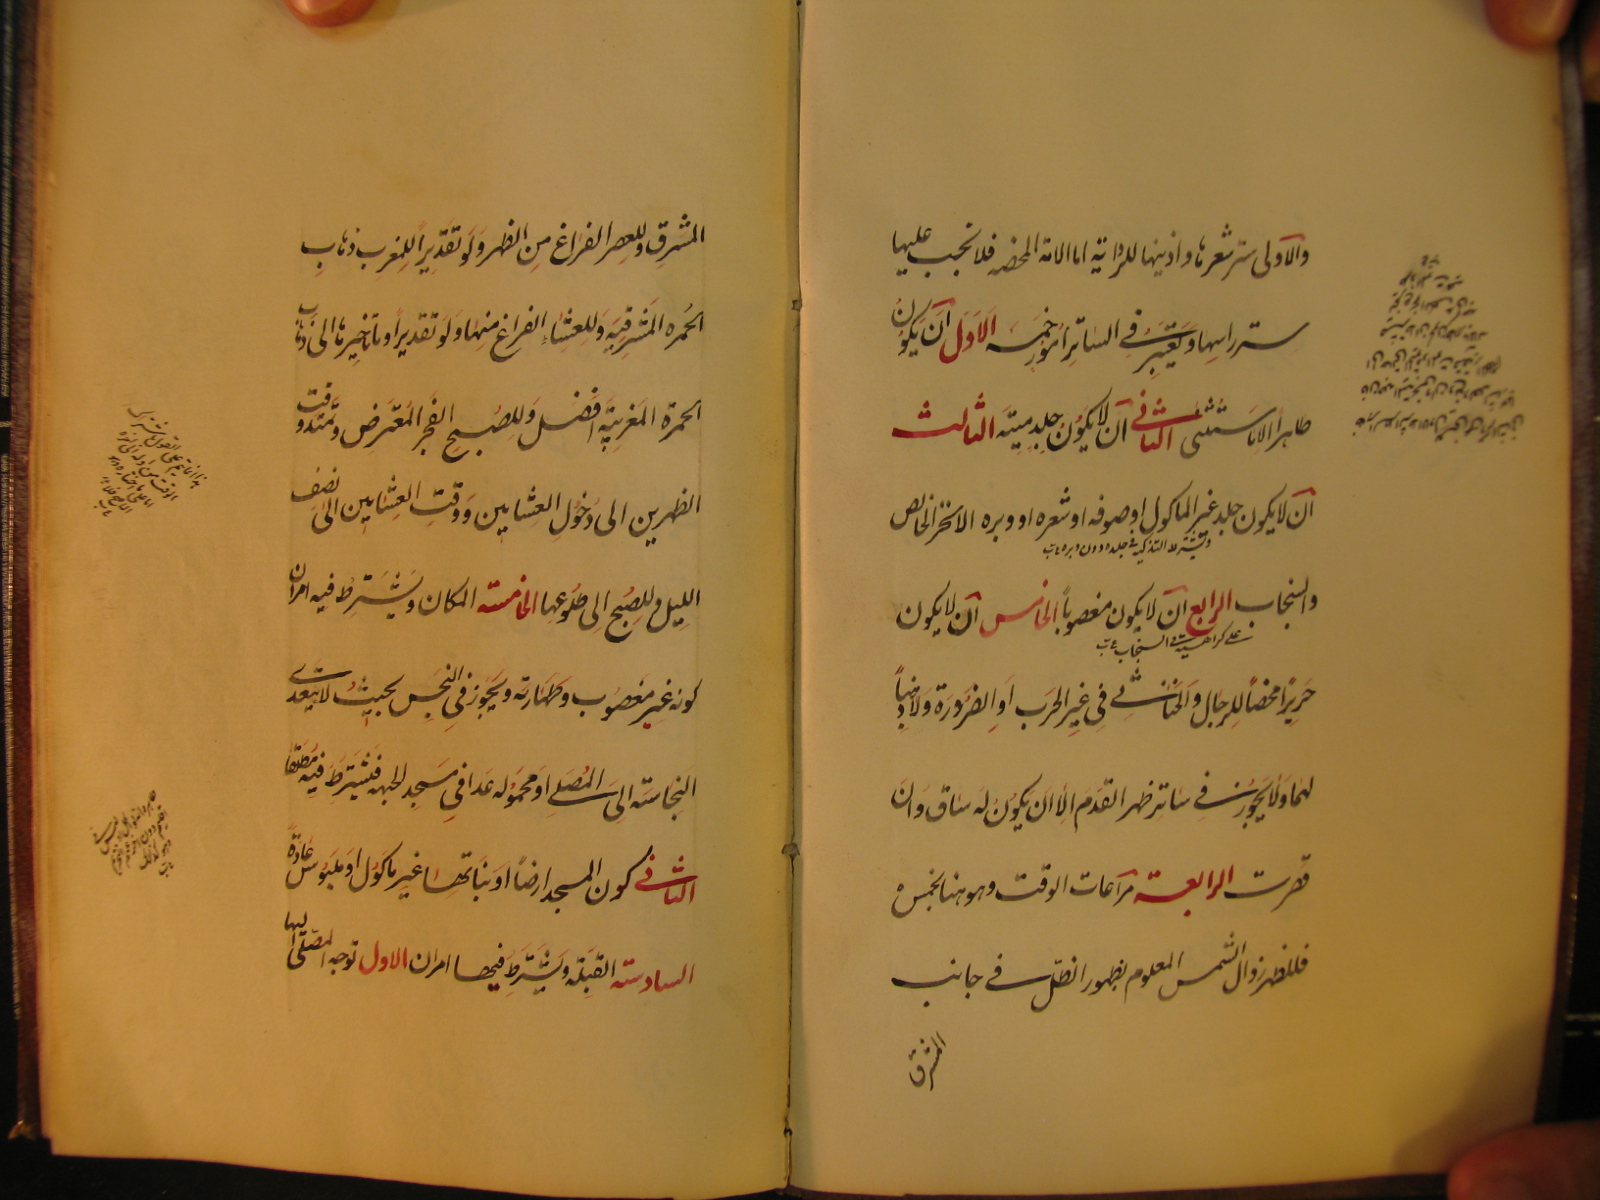 والاولى ستر شعرها واذنيها للرواية اما الامة المحضه فلا يجب عليها
ستر راسها ويعتبر في الساتر امور خمسه الاول ان يكون
طاهرا الا ما استثنى الثاني ان لا يكون جلد ميتة الثالث
ان لا يكون جلد غير الماكول او صوفه او شعره او وبره الا الخز الخالص
والسنجاب الرابع ان لا يكون مغصوباً الخامس ان لا يكون
على كراهية في السنجاب
حريرا محضاً للرجال والخناثى في غير الحرب او الضرورة ولا ذهباً
لهما ولا يجوز في ساتر ظهر القدم الا ان يكون له ساق وان
قصرت الرابعة مراعات الوقت وهو هنا لخمس
فللظهر زوال الشمس المعلوم بظهور الظل في جانب
المشرق
المشرق وللعصر الفراغ من الظهر ولو تقديراً للمغرب ذهاب
الحمره المشرقية وللعشاء الفراغ منها ولو تقديراً وتاخيرها الى ذهاب
الحمرة المغربية افضل وللصبح الفجر المعترض ويمتد وقت
الظهرين الى دخول العشايين ووقت العشايين الى نصف
الليل وللصبح الى طلوعها الخامسة المكان ويشترط فيه امران
كونه غير مغصوب وطهارته ويجوز في النجس بحيث لا يتعدى
النجاسة الى المصلي او محموله عدا في مسجد الجبهه فيشترط فيه مطلقا
الثاني كون المسجد ارضاً او نباتها غير ماكول او ملبوس عادةً
السادسة القبلة ويشترط فيها امران الاول توجه المصلى اليها